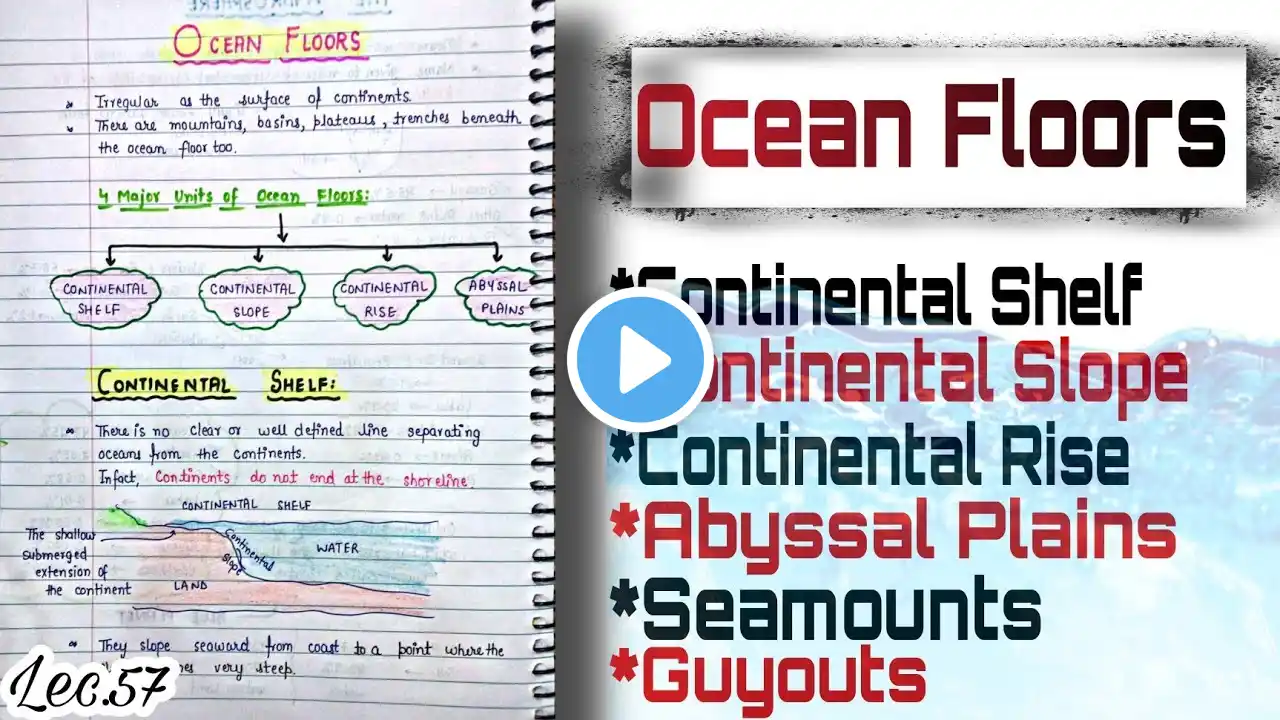 OCEAN FLOORS
Irregular as the surface of continents.
There are mountains, basins, plateaus, trenches beneath
the ocean floor too.
4 Major Units of Ocean Floors:
CONTINENTAL
SHELF
CONTINENTAL
SLOPE
CONTINENTAL
RISE
ABYSSAL
PLAINS
CONTINENTAL SHELF:
There is no clear or well defined line separating
oceans from the continents.
Infact, Continents do not end at the shoreline.
CONTINENTAL SHELF
The shallow
submerged
extension of
the continent
Continental
Slope
WATER
LAND
They slope seaward from coast to a point where the
very steep.
Lec.57
Ocean Floors
*Continental Shelf
Continental Slope
*Continental Rise
*Abyssal Plains
*Seamounts
*Guyouts